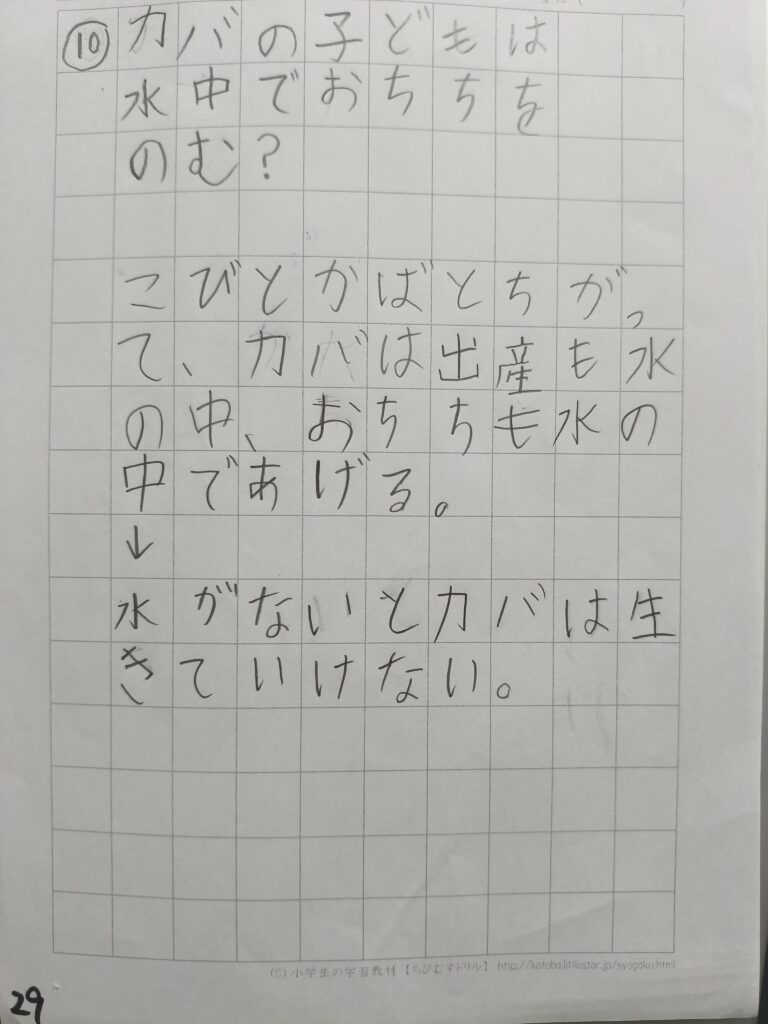 ⑩カバの子どもは
水中でおちちを
のむ?
こびとかばとちがっ
て、カバは出産も水
の中、おちちも水の
中であげる。
↓
水がないとカバは生
きていけない。
(C) 小学生の学習教材【ちびむすドリル】 http://kotoba.littlestar.jp/syogaku.html
29